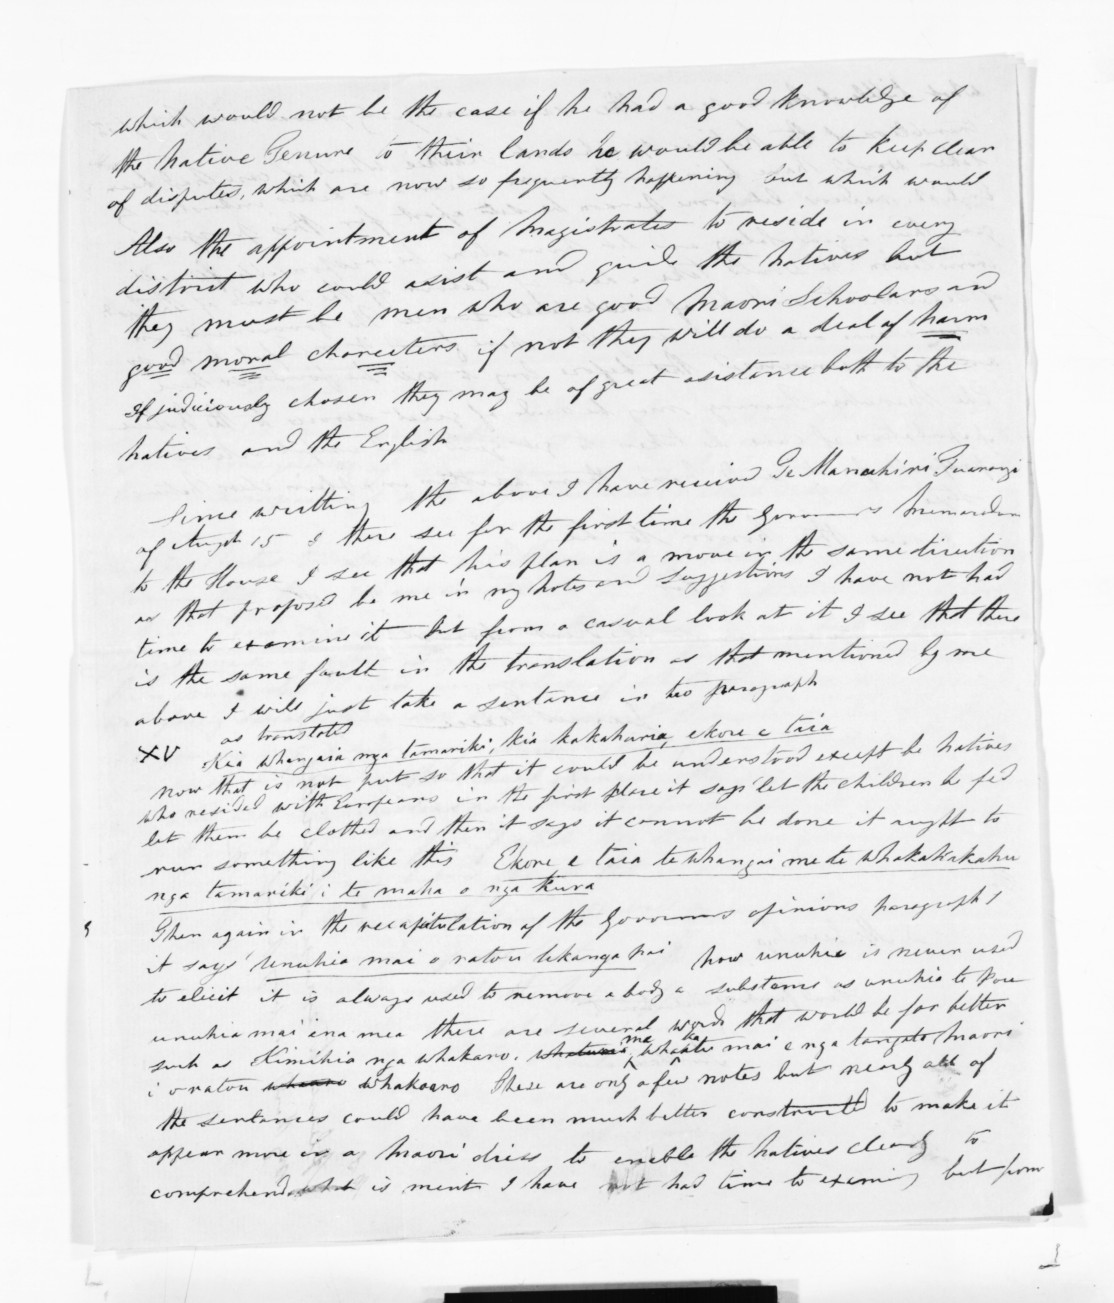 which would not be the case if he had a good knowledge of
the Native Tenure to their lands he would be able to keep clear
of disputes, which are now so frequently happening but which would
Also the appointment of Magistrates to reside in every
district who could asist and guide the Natives but
they must be men who are good Maori Schoolars and
good moral charecters if not they will do a deal of harm
If judiciously chosen they may be of great asistance both to the
Natives and the English
Since writting the above I have received Te Manuhiri Tuarangi
of Augst 15 I there see for the first time the Governors Memorandum
to the House I see that his plan is a move in the same direction
as that proposed be me in my notes and suggestions I have not had
time to examine it but from a casual look at it I see that there
is the same fault in the translation as that mentioned by me
above I will just take a sentance in two paragraph
as translated
XV Kia whangaia nga tamariki, kia kakahuria, ekore e taia
now that is not put so that it could be understood except be Natives
who resided with Europeans in the first place it says let the children be fed
let them be clothed and then it says it cannot be done it aught to
run something like this Ekore e taia te whangai me te whakakakahu
nga tamariki i te maha o nga kura
Then again in the recapitulation of the Governors opinions paragraph 1
it says Unuhia mai o ratou tikanga pai now unuhia is never used
to elicit it is always used to remove a body a substance as unuhia te pou
unuhia mai ena mea there are several words that would be far better
such as Kimihia nga whakaro, ma whaka mai e nga tangata Maori
i o ratou whakaaro These are only a few notes but nearly all of
the sentances could have been much better constructed to make it
appear more in a Maori dress to enable the Natives clearly to
comprehend what is ment I have not had time to examin but from